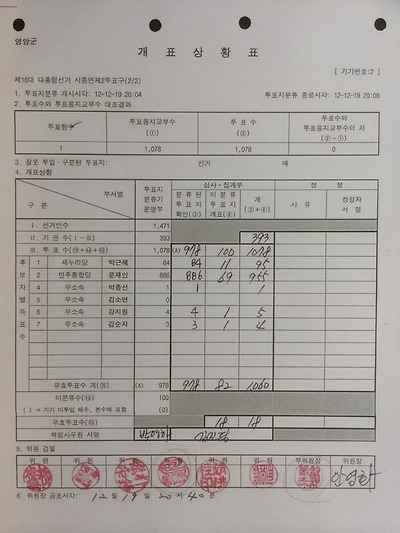 영암군
개 표 상 황 표
[ 기기번호:2 ]
제18대 대통령선거 시종면제2투표구(2/2)
1. 투표지분류 개시시각: 12-12-19 20:04 투표지분류 종료시각: 12-12-19 20:08
2. 투표수와 투표용지교부수 대조결과
투표함수 투표용지교부수 (①) 투 표 수 (②) 투표수와 투표용지교부수의 차 (②-①)
1 1,078 1,078 0
3. 잘못 투입·구분된 투표지: 선거 매
4. 개표상황
구 분 부서별 투표지 분류기 운영부 심사·집계부 정 정
분 류 된 투 표 지 확인(③) 미 분 류 투 표 지 개표(④) 계 (③+④) 사 유 정정자 서 명
Ⅰ. 선거인수 1,471
Ⅱ. 기 권 수 (Ⅰ-Ⅲ) 393 393
Ⅲ. 투 표 수 1,078 (A) 978 100 1078
후 보 자 별 득 표 수
1 새누리당 박근혜 84 84 11 95
2 민주통합당 문재인 886 886 69 955
4 무소속 박종선 1 1 1
5 무소속 김소연 0
6 무소속 강지원 4 4 1 5
7 무소속 김순자 3 3 1 4
유효투표수 계 (A) 978 978 82 1,060
미분류수 100
( ) ⇒ 기기 미투입 매수, 본수에 포함 (0)
무효투표수 18 18
책임사무원 서명
5. 위원 검열
위 원 위 원 위 원 위 원 위 원 위 원 위 원 부위원장 위원장
6. 위원장 공표시각: 12월 19일 20시 40분